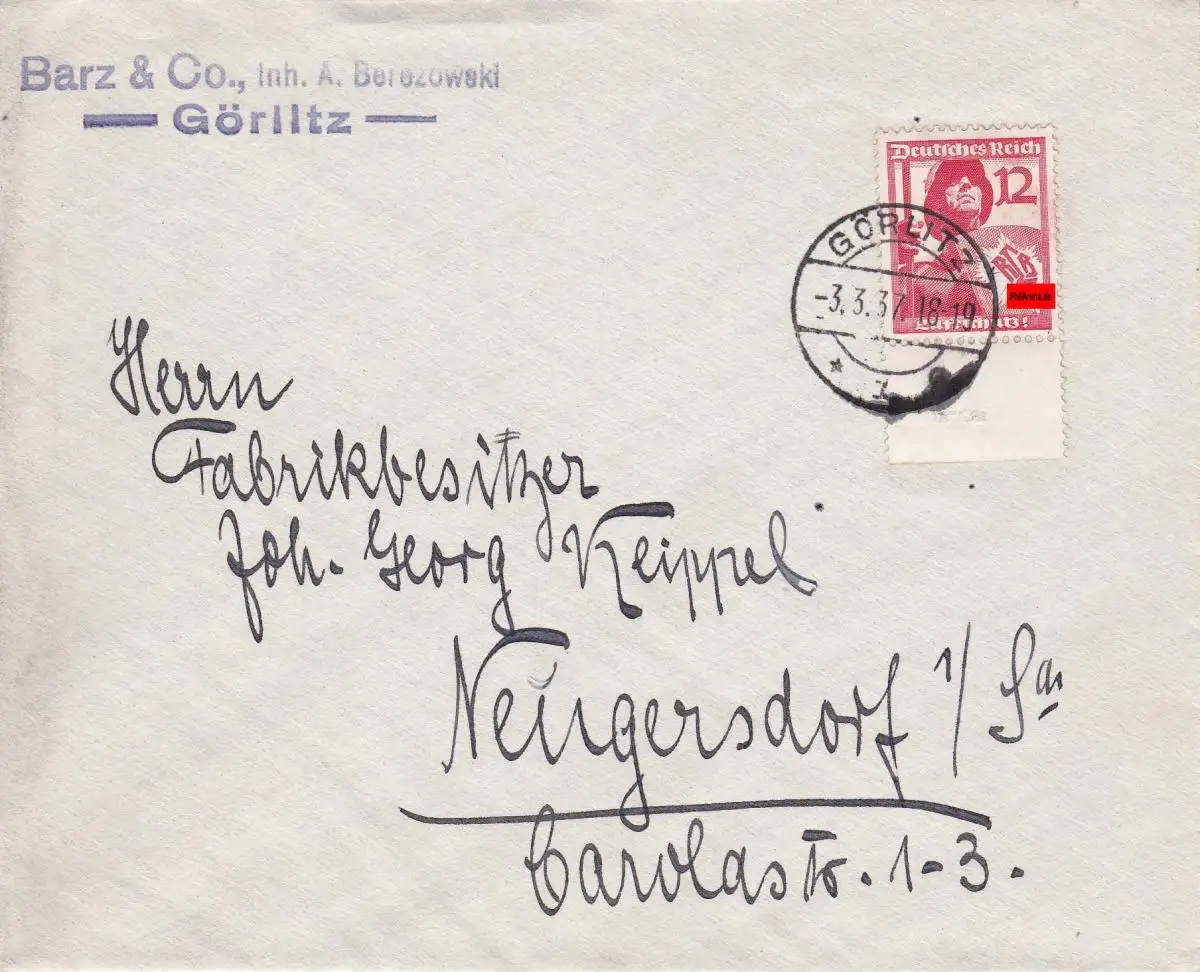 Barz & Co., Inh. A. Berezowski
Görlitz
Deutsches Reich
12
RLB
PhilArena.de
Luftschutz!
GÖRLITZ
-3.3.37.18-19
* 1
Herrn
Fabrikbesitzer
Joh. Georg Keippel
Neugersdorf i/Sa
Carolastr. 1-3.